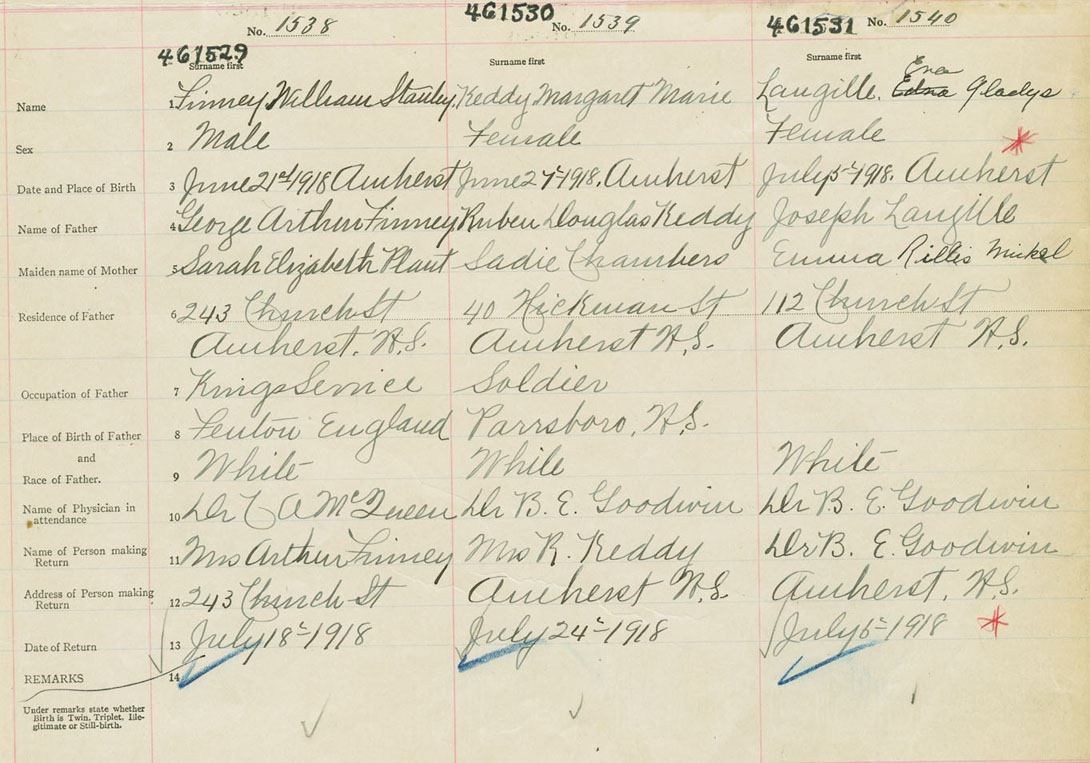 No. 1538
461529
Surname first
461530
No. 1539
Surname first
461531
No. 1540
Surname first
Name
1. Finney William Stanley.
Keddy Margaret Marie
Eva
Langille. Edna Gladys
Sex
2 Male
Female
Female
Date and Place of Birth
3 June 21st 1918 Amherst
June 27th 1918. Amherst
July 5th 1918. Amherst
Name of Father
4 George Arthur Finney
Ruben Douglas Keddy
Joseph Langille
Maiden name of Mother
5 Sarah Elizabeth Plant
Sadie Chambers
Emma Rillis
Residence of Father
6 243 Church St
40 Hickman St
112 Church St
Amherst. N.S.
Amherst N.S.
Amherst N.S.
Occupation of Father
7 Kings Service
Soldier
Place of Birth of Father
8 Fenton England
Parrsboro, N.S.
and
Race of Father.
9 White
White
White
Name of Physician in
attendance
10 Dr C A McQueen
Dr B. E. Goodwin
Dr B. E. Goodwin
Name of Person making
Return
11 Mrs Arthur Finney
Mrs R. Keddy
Dr B. E. Goodwin
Address of Person making
Return
12 243 Church St
Amherst N.S.
Amherst, N.S.
Date of Return
13 July 18th 1918
July 24th 1918
July 5th 1918
REMARKS
14
Under remarks state whether
Birth is Twin, Triplet, Ille-
gitimate or Still-birth.